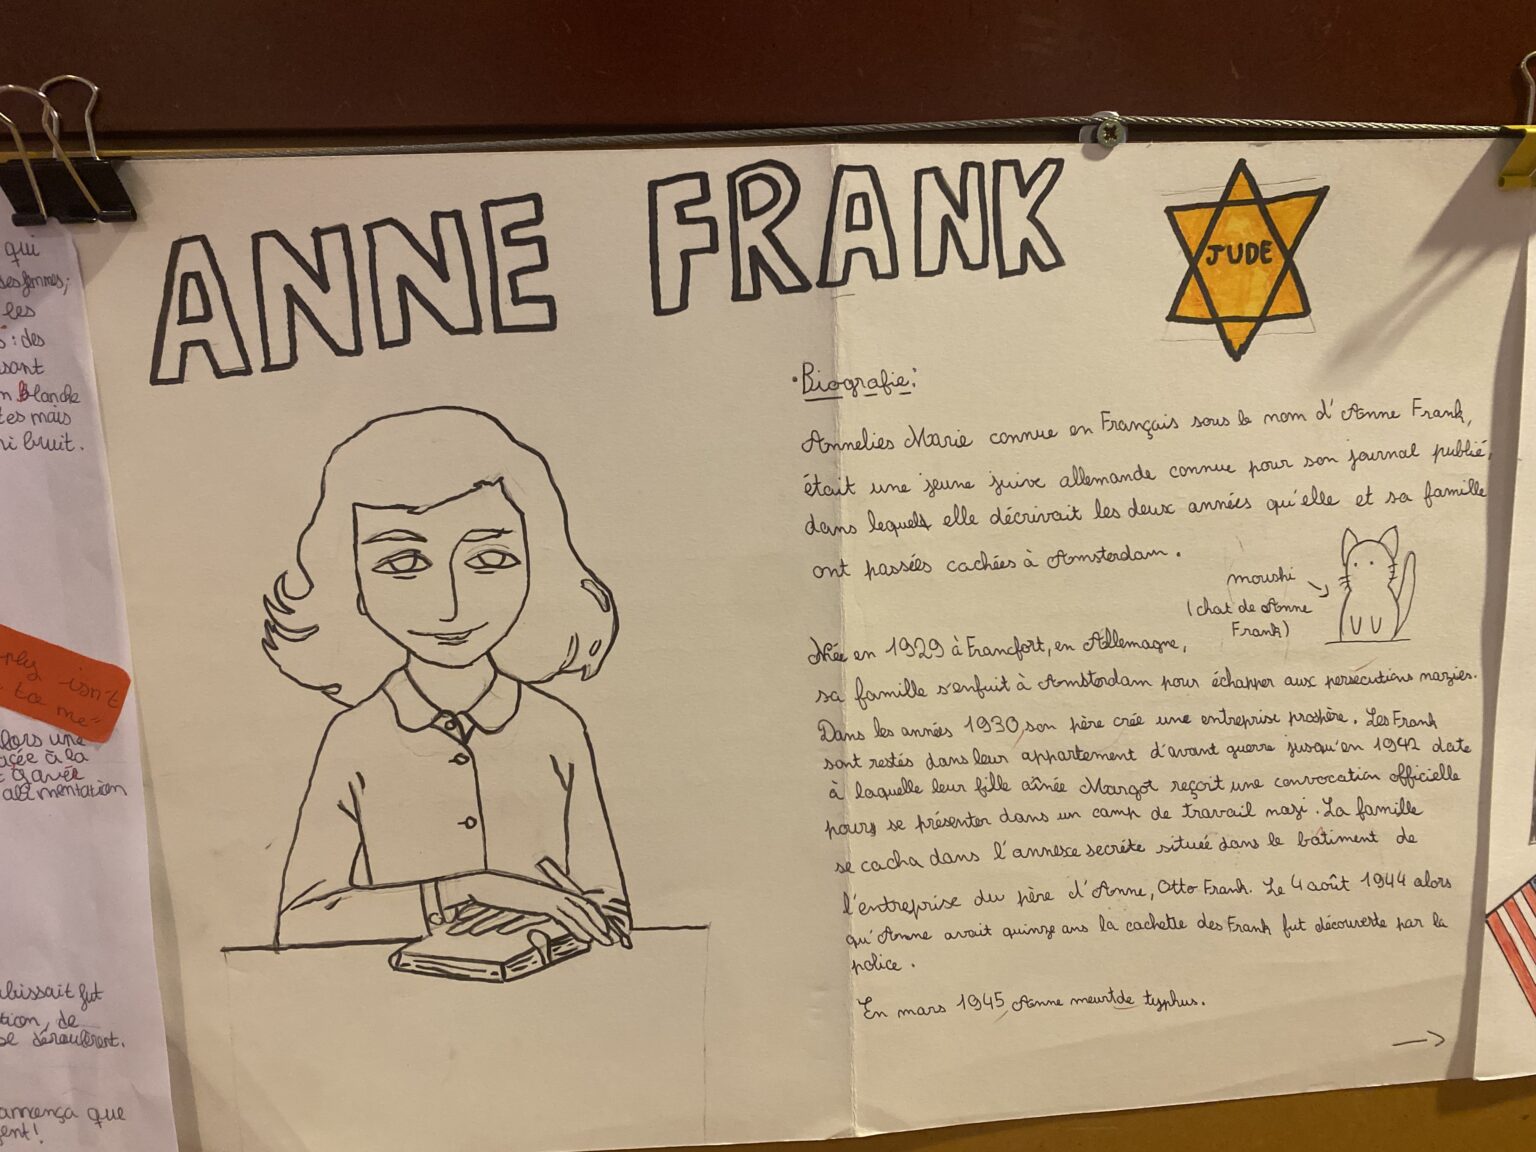 ANNE FRANK
JUDE
• Biografie:
Annelies Marie connue en Français sous le nom d'Anne Frank,
était une jeune juive allemande connue pour son journal publié,
dans lequel elle décrivait les deux années qu'elle et sa famille
ont passées cachées à Amsterdam.
moushi
(chat de Anne
Frank)
Née en 1929 à Francfort, en Allemagne,
sa famille s'enfuit à Amsterdam pour échapper aux persécutions nazies.
Dans les années 1930, son père crée une entreprise prospère. Les Frank
sont restés dans leur appartement d'avant guerre jusqu'en 1942 date
à laquelle leur fille aînée Margot reçoit une convocation officielle
pour se présenter dans un camp de travail nazi. La famille
se cacha dans l'annexe secrète située dans le bâtiment de
l'entreprise du père d'Anne, Otto Frank. Le 4 août 1944 alors
qu'Anne avait quinze ans la cachette des Frank fut découverte par la
police.
En mars 1945, Anne meurt de typhus.
→
qui
ses femmes;
les
: des
sant
blanche
tes mais
ni bruit.
isn't
to me"
alors une
à la
à gavée
alimentation
fut
de
se déroulèrent.
que